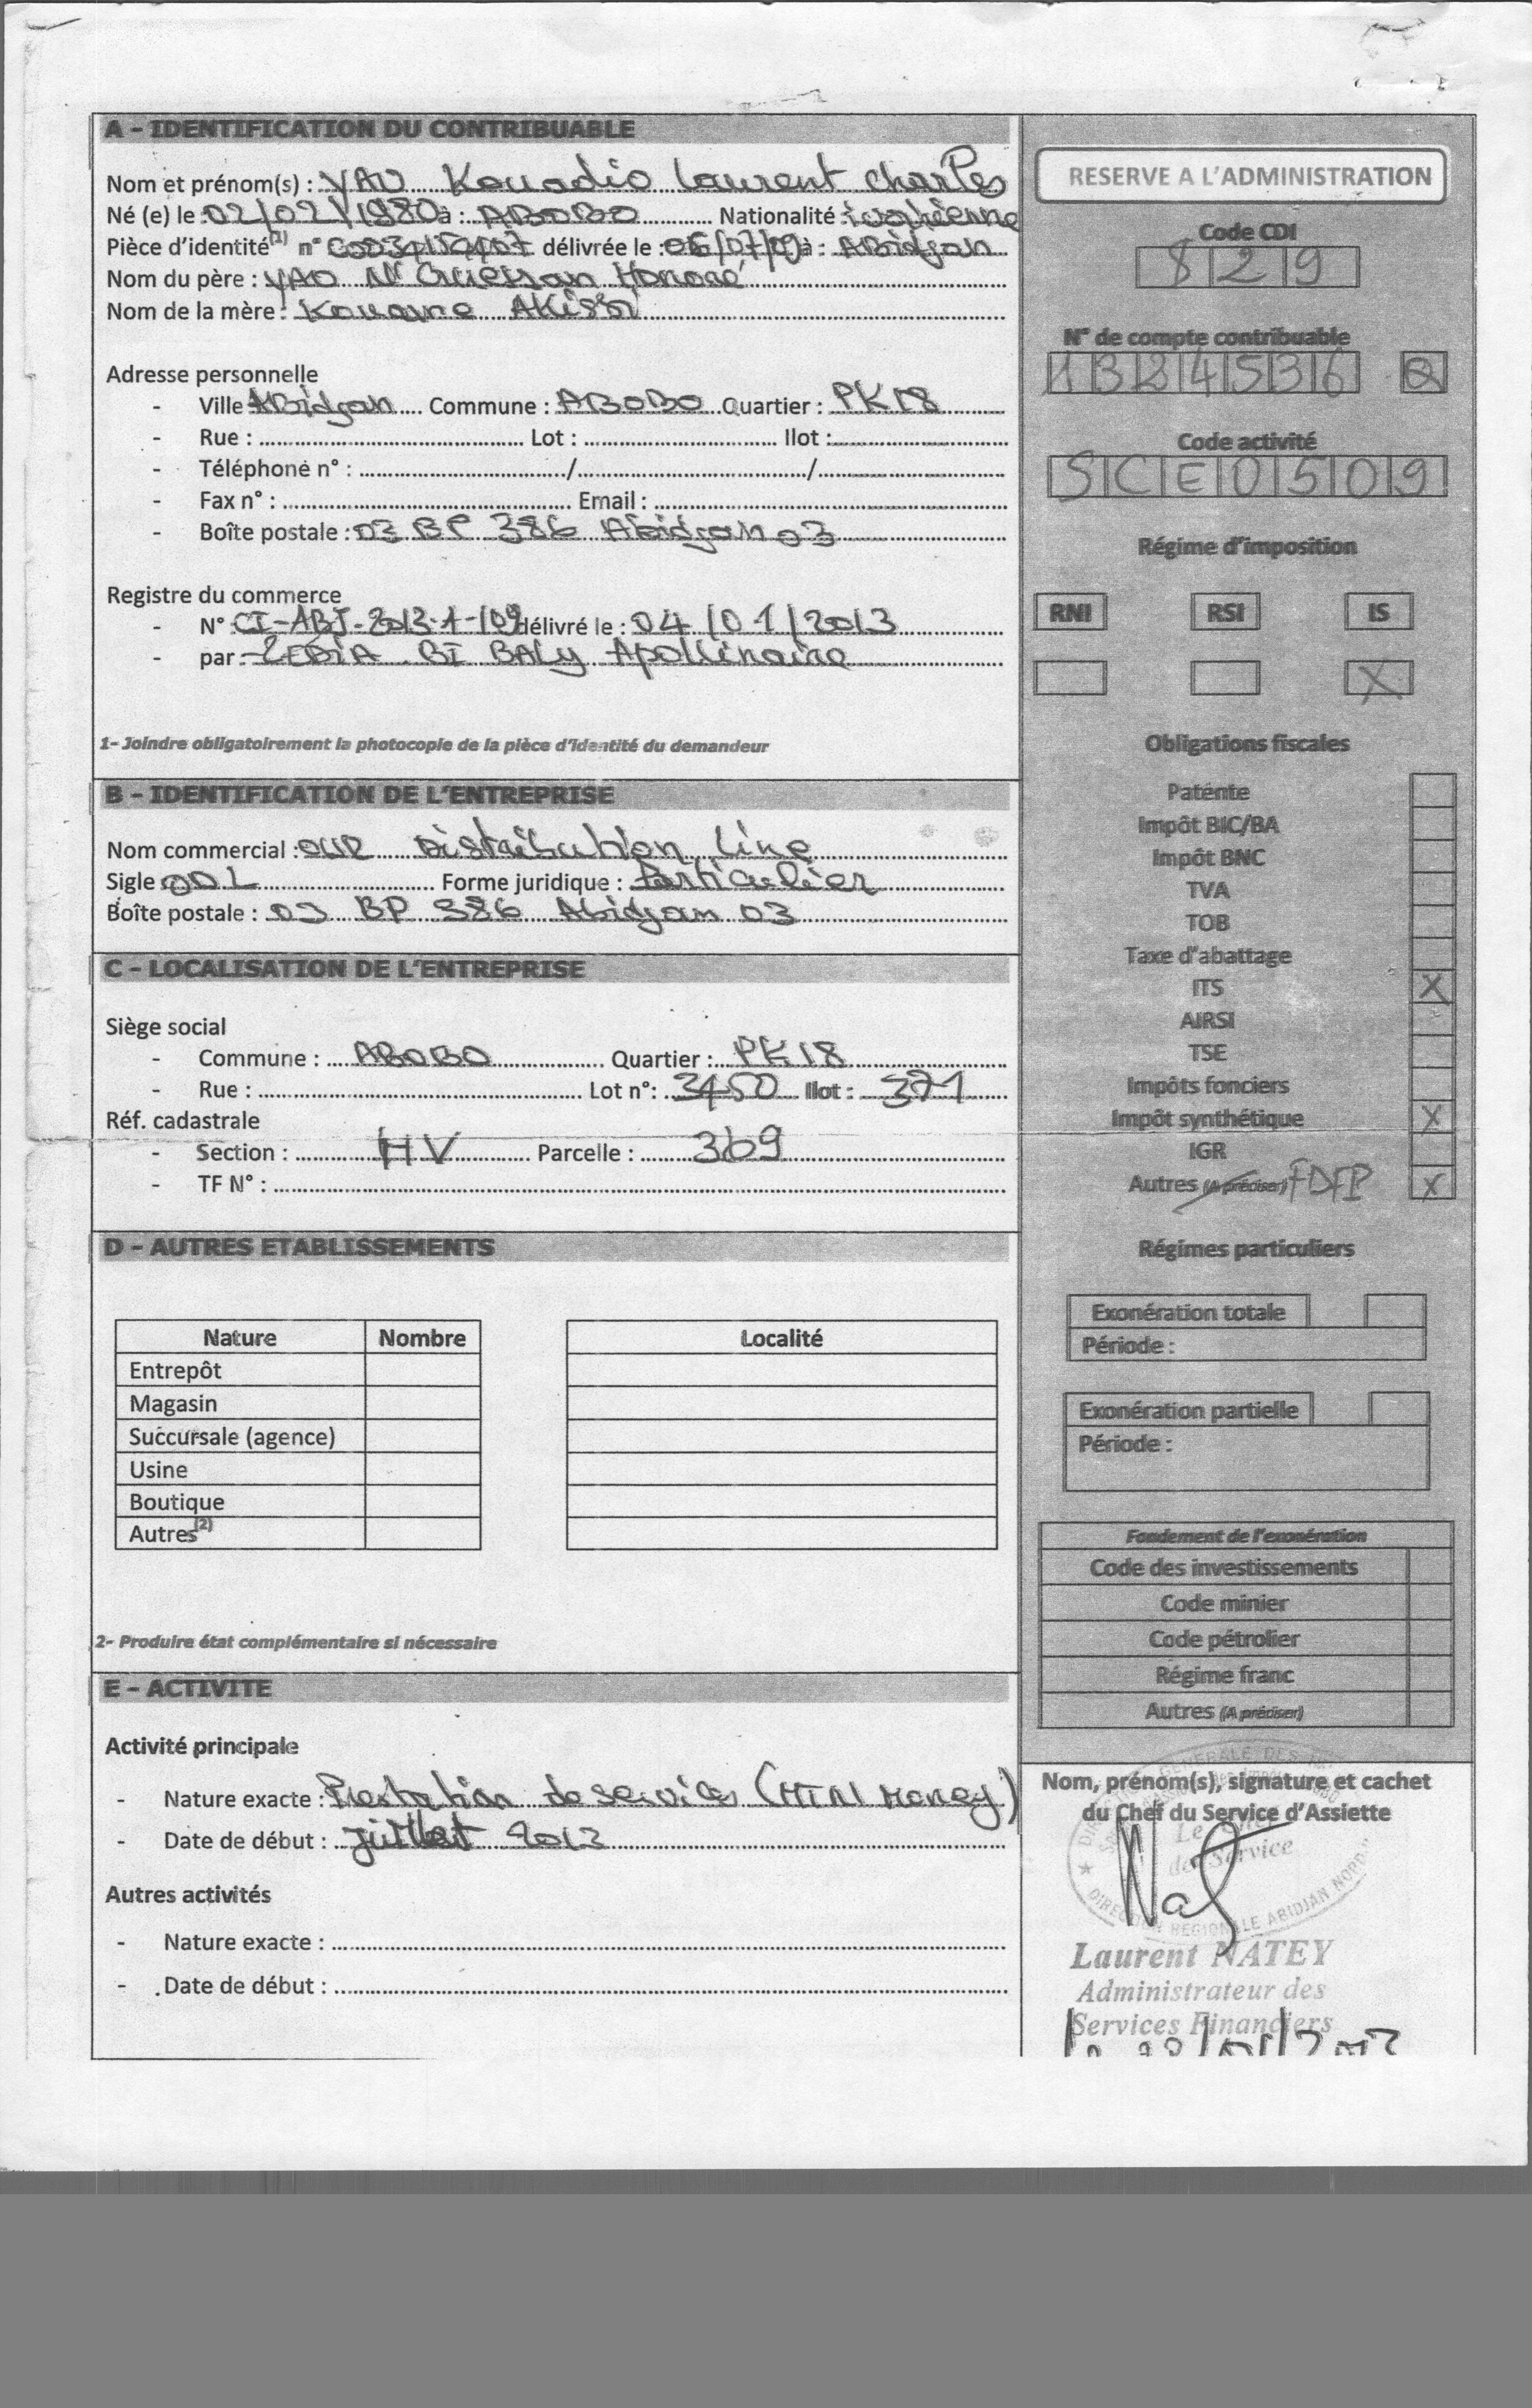 A - IDENTIFICATION DU CONTRIBUABLE
Nom et prénom(s) : YAO Kouadio Laurent Charles
Né (e) le : 02/02/1980 à : ABOBO Nationalité : ivoirienne
Pièce d'identité(1) n° délivrée le : 06/07/09 à : Abidjan
Nom du père : YAO N'Guessan Honoré
Nom de la mère : Kouame AKissi
Adresse personnelle
- Ville Abidjan Commune : ABOBO Quartier : PK18
- Rue : Lot : Ilot :
- Téléphone n° : / /
- Fax n° : Email :
- Boîte postale : 03 BP 386 Abidjan 03
Registre du commerce
- N° CI-ABJ-2013-1-109 délivré le : 04/01/2013
- par BI BALY Apollinaire
1- Joindre obligatoirement la photocopie de la pièce d'identité du demandeur
B - IDENTIFICATION DE L'ENTREPRISE
Nom commercial : OUR Distribution Line
Sigle ODL Forme juridique : Particulier
Boîte postale : 03 BP 386 Abidjan 03
C - LOCALISATION DE L'ENTREPRISE
Siège social
- Commune : ABOBO Quartier : PK18
- Rue : Lot n° : 3450 Ilot : 371
Réf. cadastrale
- Section : HV Parcelle : 369
- TF N° :
D - AUTRES ETABLISSEMENTS
Nature Nombre Localité
Entrepôt
Magasin
Succursale (agence)
Usine
Boutique
Autres(2)
2- Produire état complémentaire si nécessaire
E - ACTIVITE
Activité principale
- Nature exacte : Prestation de services (MTN Money)
- Date de début : Juillet
Autres activités
- Nature exacte :
- Date de début :
RESERVE A L'ADMINISTRATION
Code CDI
829
N° de compte contribuable
1324536 Q
Code activité
SCE0509
Régime d'imposition
RNI RSI IS
X
Obligations fiscales
Patente
Impôt BIC/BA
Impôt BNC
TVA
TOB
Taxe d'abattage
ITS X
AIRSI
TSE
Impôts fonciers
Impôt synthétique X
IGR
Autres (A préciser) FDFP X
Régimes particuliers
Exonération totale
Période :
Exonération partielle
Période :
Fondement de l'exonération
Code des investissements
Code minier
Code pétrolier
Régime franc
Autres (A préciser)
Nom, prénom(s), signature et cachet
du Chef du Service d'Assiette
Le Chef
de Service
DIRECTION REGIONALE ABIDJAN NORD
Laurent NATEY
Administrateur des
Services Financiers